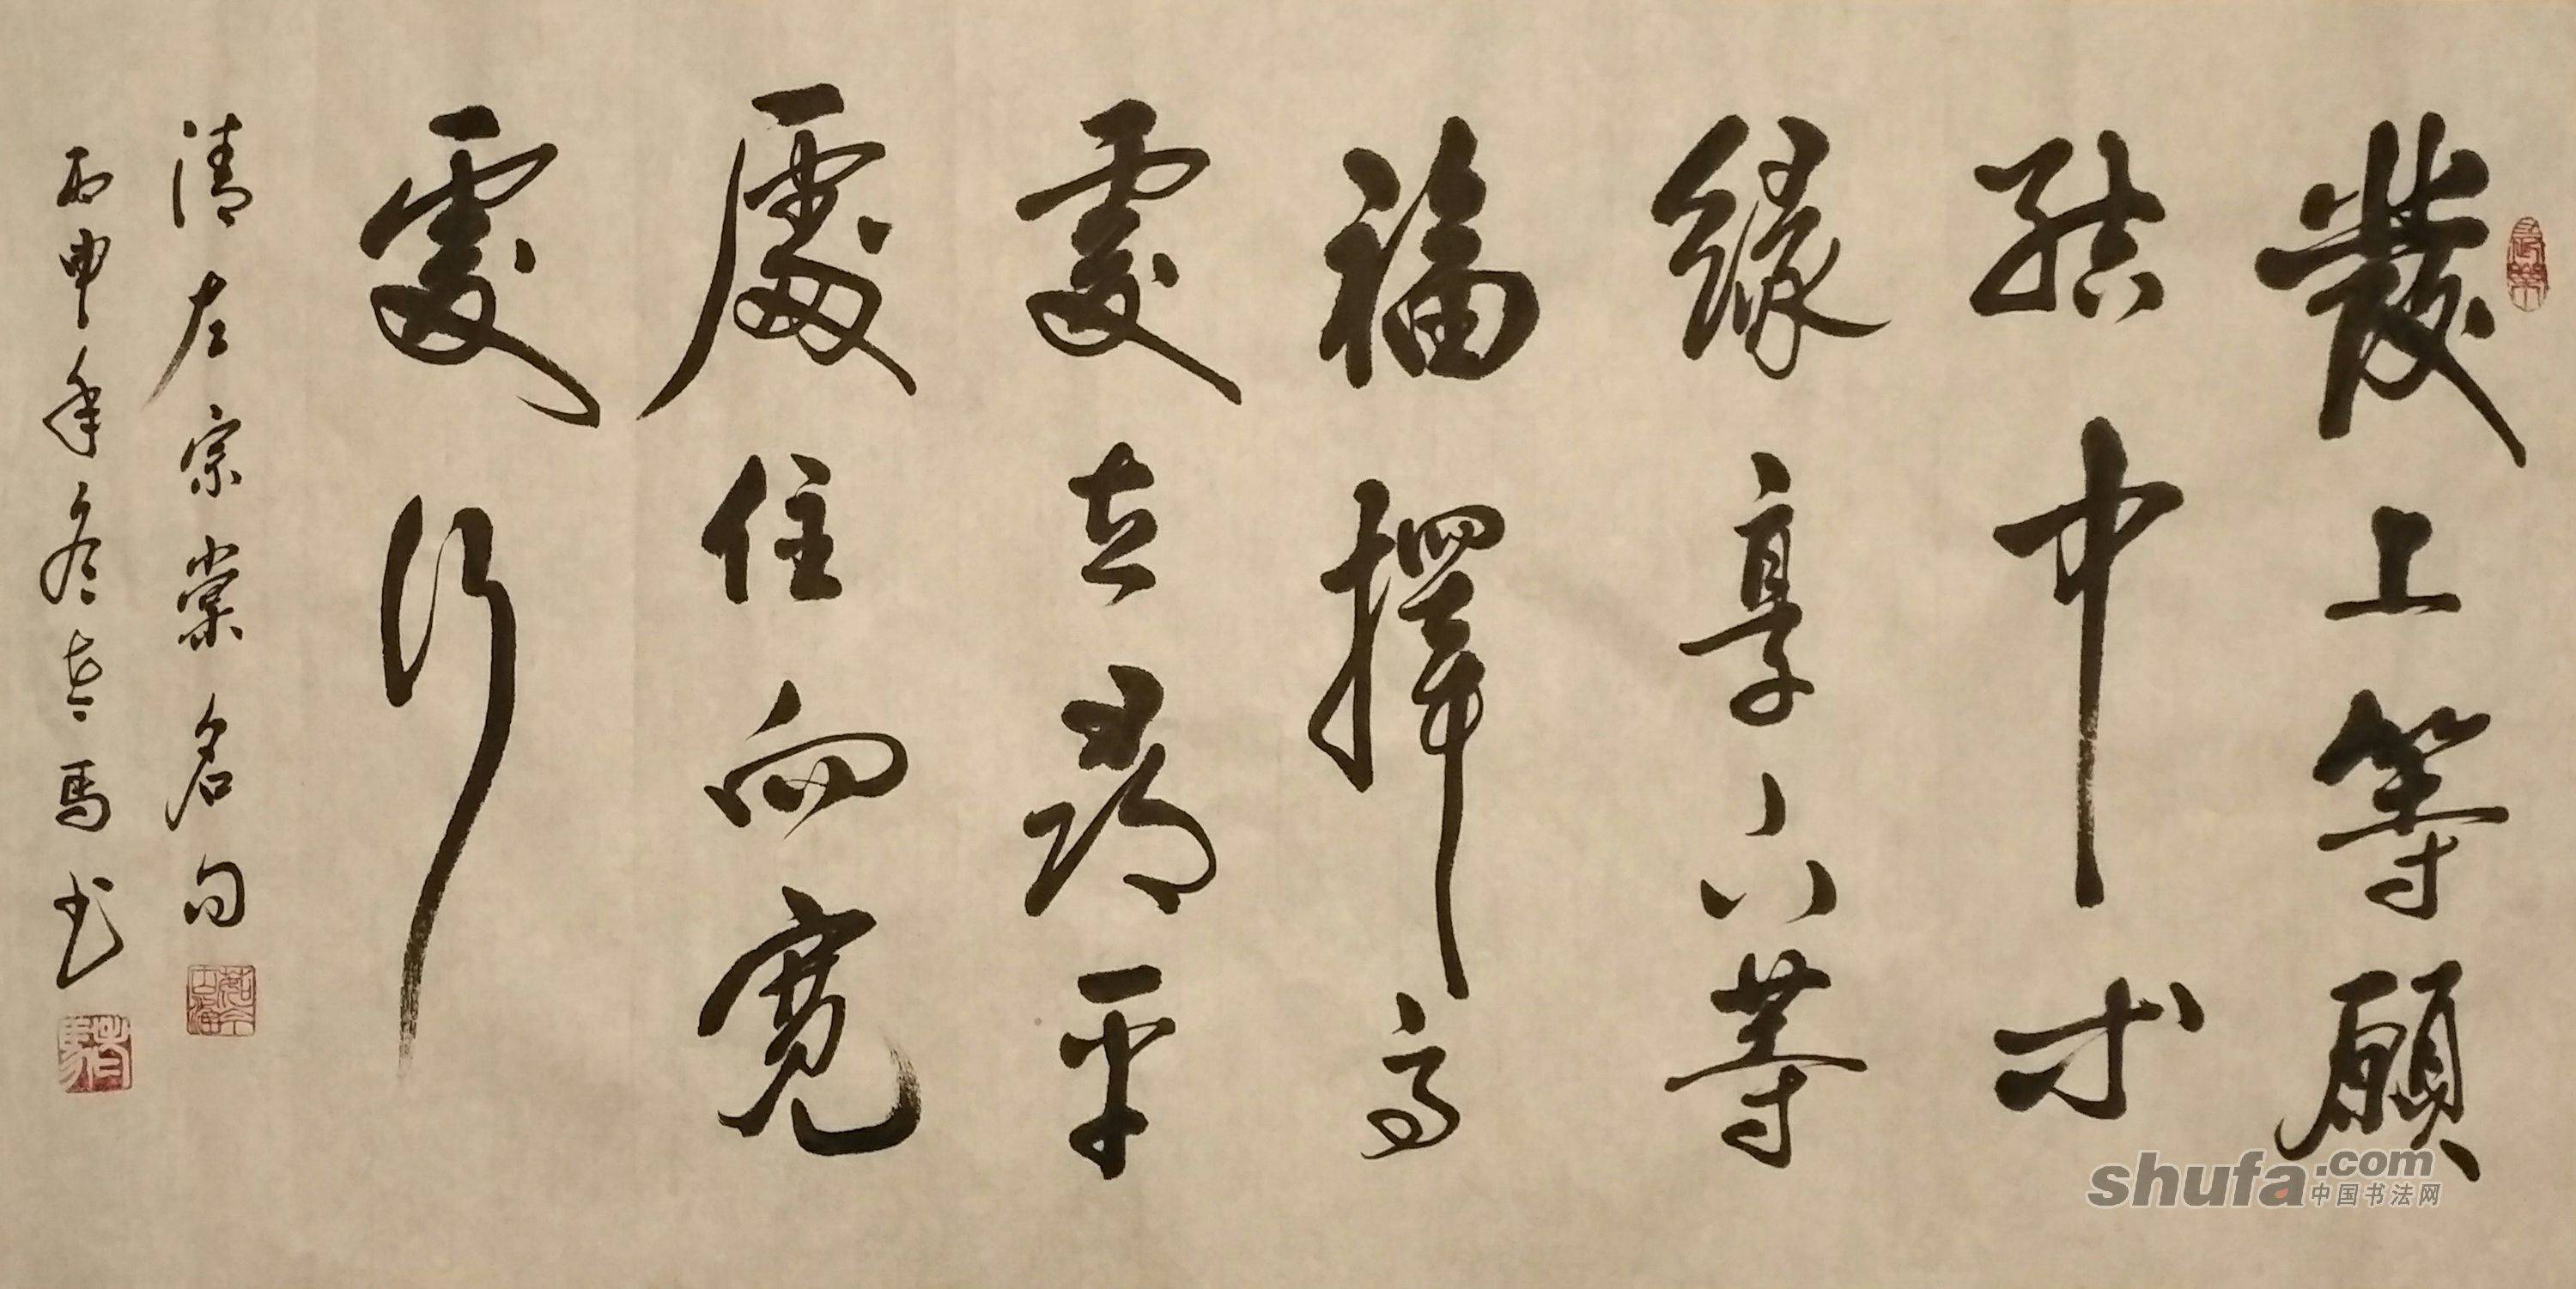 發上等願
結中等
緣享下等
福擇高
處立尋平
處住向寬
處行
清左宗棠名句
丙申年冬馬书
shufa.com
中国书法网